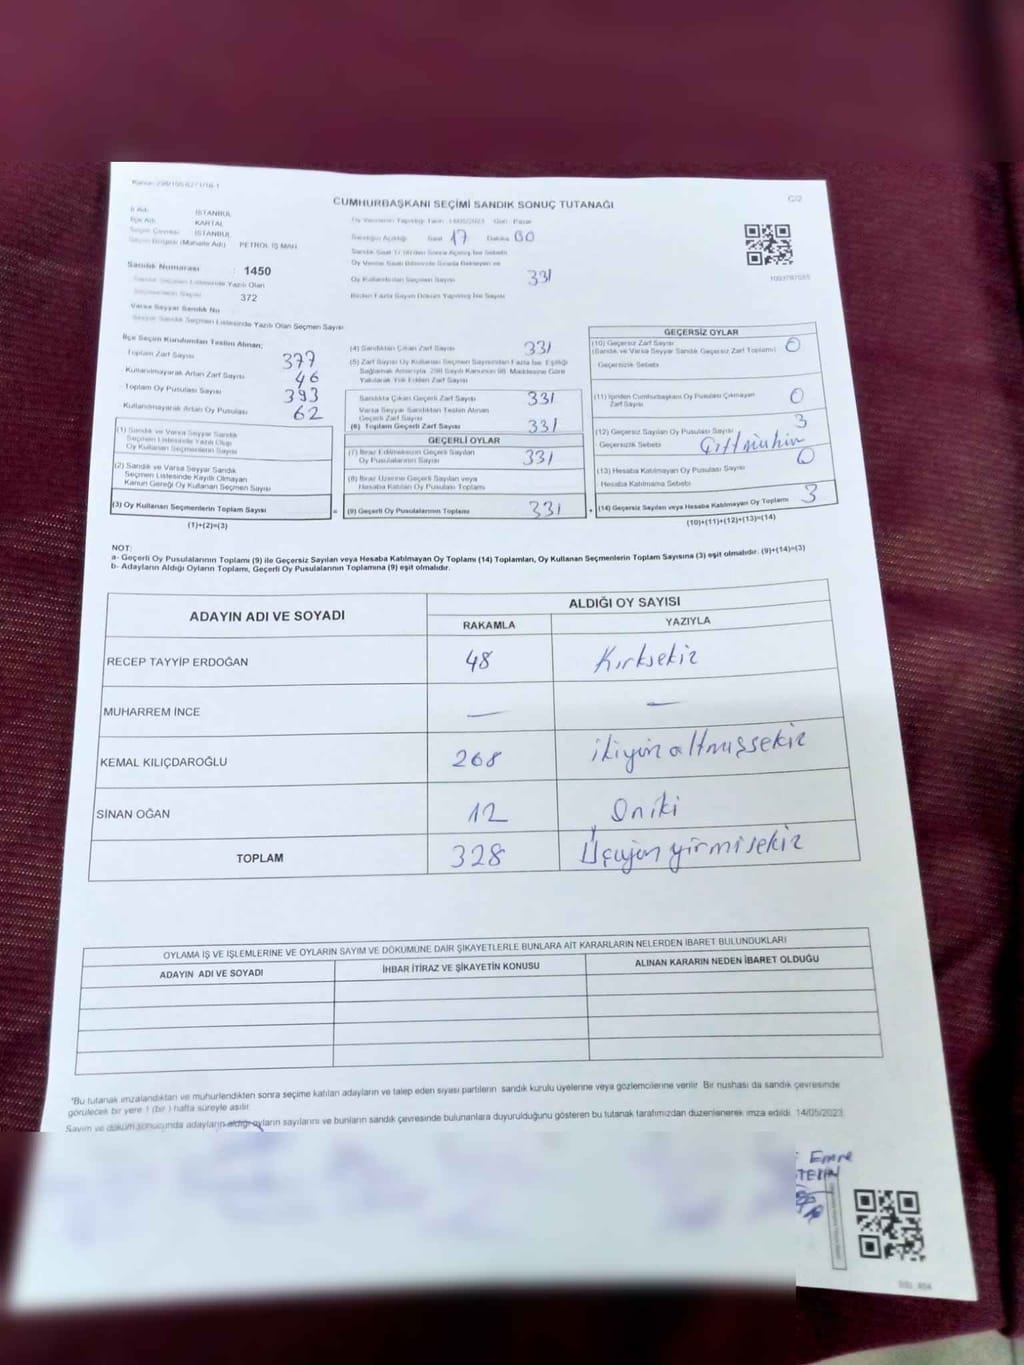 Kanun: 298/105,6271/16-1
CUMHURBAŞKANI SEÇİMİ SANDIK SONUÇ TUTANAĞI
C/2
İl Adı: İSTANBUL
İlçe Adı: KARTAL
Seçim Çevresi: İSTANBUL
Seçim Bölgesi (Mahalle Adı) PETROL İŞ MAH.
Oy Vermenin Yapıldığı Tarih: 14/05/2023 Gün: Pazar
Sandığın Açıldığı Saat 17 Dakika 00
Oy Kullandırılan Seçmen Sayısı 331
Birden Fazla Sayım Döküm Yapılmış İse Sayısı
Sandık Numarası : 1450
Sandık Seçmen Listesinde Yazılı Olan Seçmenlerin Sayısı 372
Varsa Seyyar Sandık No
Seyyar Sandık Seçmen Listesinde Yazılı Olan Seçmen Sayısı:
İlçe Seçim Kurulundan Teslim Alınan;
Toplam Zarf Sayısı 377
Kullanılmayarak Artan Zarf Sayısı 46
Toplam Oy Pusulası Sayısı 393
Kullanılmayarak Artan Oy Pusulası 62
(1) Sandık ve Varsa Seyyar Sandık
Seçmen Listesinde Yazılı Olup
Oy Kullanan Seçmenlerin Sayısı
(2) Sandık ve Varsa Seyyar Sandık
Seçmen Listesinde Kayıtlı Olmayan
Kanun Gereği Oy Kullanan Seçmen Sayısı
(3) Oy Kullanan Seçmenlerin Toplam Sayısı =
(1)+(2)=(3)
(4) Sandıktan Çıkan Zarf Sayısı 331
(5) Zarf Sayısı Oy Kullanan Seçmen Sayısından Fazla İse, Eşitliği
Sağlamak Amacıyla, 298 Sayılı Kanunun 98. Maddesine Göre
Yakılarak Yok Edilen Zarf Sayısı
Sandıkta Çıkan Geçerli Zarf Sayısı 331
Varsa Seyyar Sandıktan Teslim Alınan
Geçerli Zarf Sayısı
(6) Toplam Geçerli Zarf Sayısı 331
GEÇERLİ OYLAR
(7) İtiraz Edilmeksizin Geçerli Sayılan
Oy Pusulalarının Sayısı 331
(8) İtiraz Üzerine Geçerli Sayılan veya
Hesaba Katılan Oy Pusulası Toplamı
(9) Geçerli Oy Pusulalarının Toplamı 331 +
GEÇERSİZ OYLAR
(10) Geçersiz Zarf Sayısı 0
(Sandık ve Varsa Seyyar Sandık Geçersiz Zarf Toplamı)
Geçersizlik Sebebi
(11) İçinden Cumhurbaşkanı Oy Pusulası Çıkmayan
Zarf Sayısı 0
(12) Geçersiz Sayılan Oy Pusulası Sayısı 3
Geçersizlik Sebebi Çift mühür
(13) Hesaba Katılmayan Oy Pusulası Sayısı 0
Hesaba Katılmama Sebebi
(14) Geçersiz Sayılan veya Hesaba Katılmayan Oy Toplamı 3
(10)+(11)+(12)+(13)=(14)
NOT:
a- Geçerli Oy Pusulalarının Toplamı (9) ile Geçersiz Sayılan veya Hesaba Katılmayan Oy Toplamı (14) Toplamları, Oy Kullanan Seçmenlerin Toplam Sayısına (3) eşit olmalıdır. (9)+(14)=(3)
b- Adayların Aldığı Oyların Toplamı, Geçerli Oy Pusulalarının Toplamına (9) eşit olmalıdır.
ADAYIN ADI VE SOYADI
ALDIĞI OY SAYISI
RAKAMLA YAZIYLA
RECEP TAYYİP ERDOĞAN 48 Kırksekiz
MUHARREM İNCE — —
KEMAL KILIÇDAROĞLU 268 ikiyüzaltmışsekiz
SİNAN OĞAN 12 Oniki
TOPLAM 328 Üçyüzyirmisekiz
OYLAMA İŞ VE İŞLEMLERİNE VE OYLARIN SAYIM VE DÖKÜMÜNE DAİR ŞİKAYETLERLE BUNLARA AİT KARARLARIN NELERDEN İBARET BULUNDUKLARI
ADAYIN ADI VE SOYADI İHBAR İTİRAZ VE ŞİKAYETİN KONUSU ALINAN KARARIN NEDEN İBARET OLDUĞU
"Bu tutanak imzalandıktan ve mühürlendikten sonra seçime katılan adayların ve talep eden siyasi partilerin sandık kurulu üyelerine veya gözlemcilerine verilir. Bir nüshası da sandık çevresinde
görülecek bir yere 1 (bir ) hafta süreyle asılır.
Sayım ve döküm sonucunda adayların aldığı oyların sayılarını ve bunların sandık çevresinde bulunanlara duyurulduğunu gösteren bu tutanak tarafımızdan düzenlenerek imza edildi. 14/05/2023
Emre